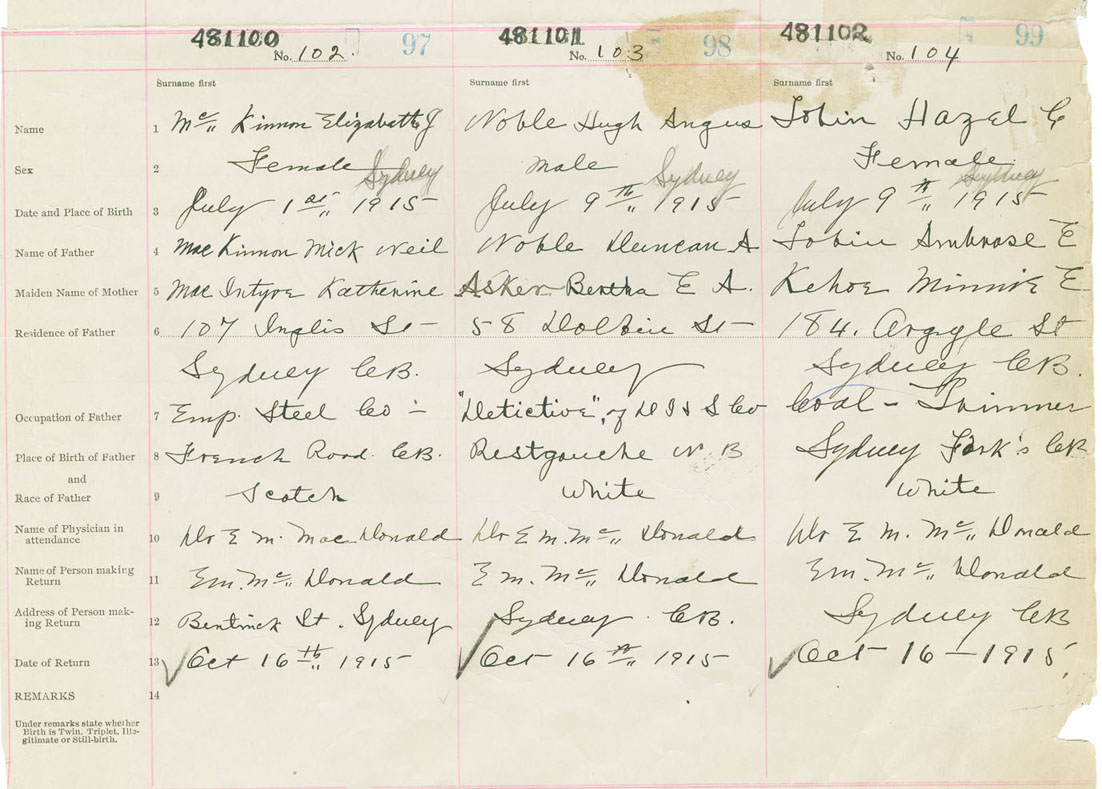 481100 481101 481102
No. 102. 97 No. 103 98 No. 104 99
Surname first Surname first Surname first
Name 1 Mc Kinnon Elizabeth J Noble Hugh Angus Tobin Hazel C
Sex 2 Female Male Female
Sydney Sydney Sydney
Date and Place of Birth 3 July 1st 1915 July 9th 1915 July 9th 1915
Name of Father 4 Mac Kinnon Mick Neil Noble Duncan A Tobin Ambrose E
Maiden Name of Mother 5 Mac Intyre Katherine Asker Bertha E A. Kehoe Minnie E
Residence of Father 6 107 Inglis St 58 Dolbin St 184. Argyle St
Sydney CB. Sydney Sydney CB.
Occupation of Father 7 Emp. Steel Co - "Detictive", of D I & S Co Coal - Trimmer
Place of Birth of Father 8 French Road. CB. Restgouche N. B Sydney Fork's CB
and
Race of Father 9 Scotch White White
Name of Physician in
attendance 10 Dr E M. Mac Donald Dr E M. Mc Donald Dr E M. Mc Donald
Name of Person making
Return 11 E M. Mc Donald E M. Mc Donald E M. Mc Donald
Address of Person mak-
ing Return 12 Bentinck St. Sydney Sydney. CB. Sydney CB
Date of Return 13 Oct 16th 1915 Oct 16th 1915 Oct 16 - 1915.
REMARKS 14
Under remarks state whether
Birth is Twin, Triplet, Ille-
gitimate or Still-birth.